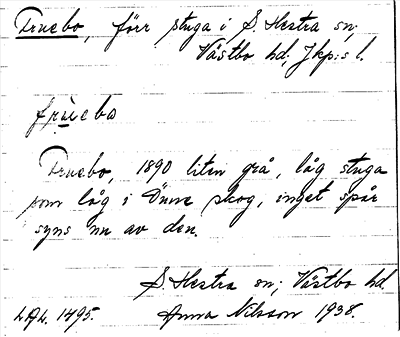 Fruebo, förr stuga i S. Hestra sn;
Västbo hd; Jkp:s l.
frùebo
Fruebo, 1890 liten grå, låg stuga
som låg i Önne skog, inget spår
syns nu av den.
S. Hestra sn; Västbo hd.
L.A.L. 1495. Anna Nilsson 1938.